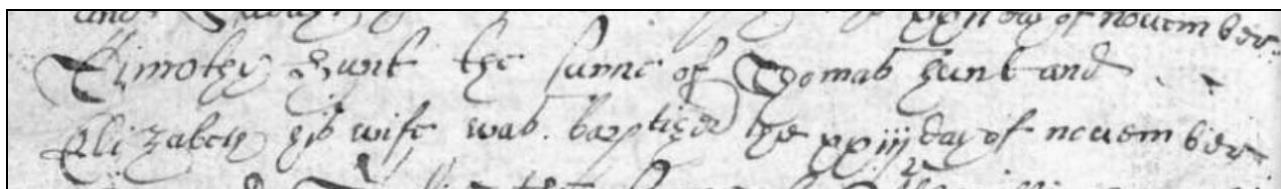 xxii day of november
Timothy Hunt the sunne of Thomas Hunt and
Elizabeth his wife was baptized the xxiij day of november